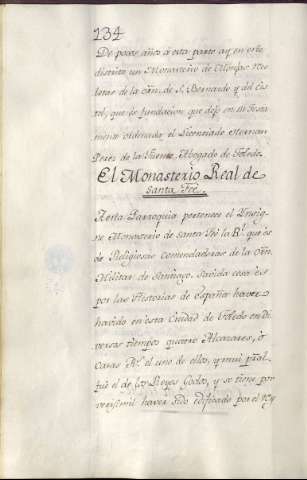 134
De pocos años á esta parte ay en este
distrito un Monasterio de Monjas Reco
letas de la orn. de S. Bernardo y del Cis
tel, que es fundacion que dejó en su testa
mento ordenada el Licenciado Hernan
Perez de la Fuente, Abogado de Toledo.
El Monasterio Real de
Santa Fee.
A esta Parroquia pertenece el Insig-
ne Monasterio de Santa Fee la Rl. que és
de Religiosas Comendadoras de la Orn.
Militar de Santiago. Savida cosa és
por las Historias de España haver
havido en esta Ciudad de Toledo en Di
versas tiempos quatro Alcazares, ó
Casas Rs. el uno de ellos, y mui pral.
fué el de los Reyes Godos, y se tiene por
verisimil haver sido edificado por el Rey